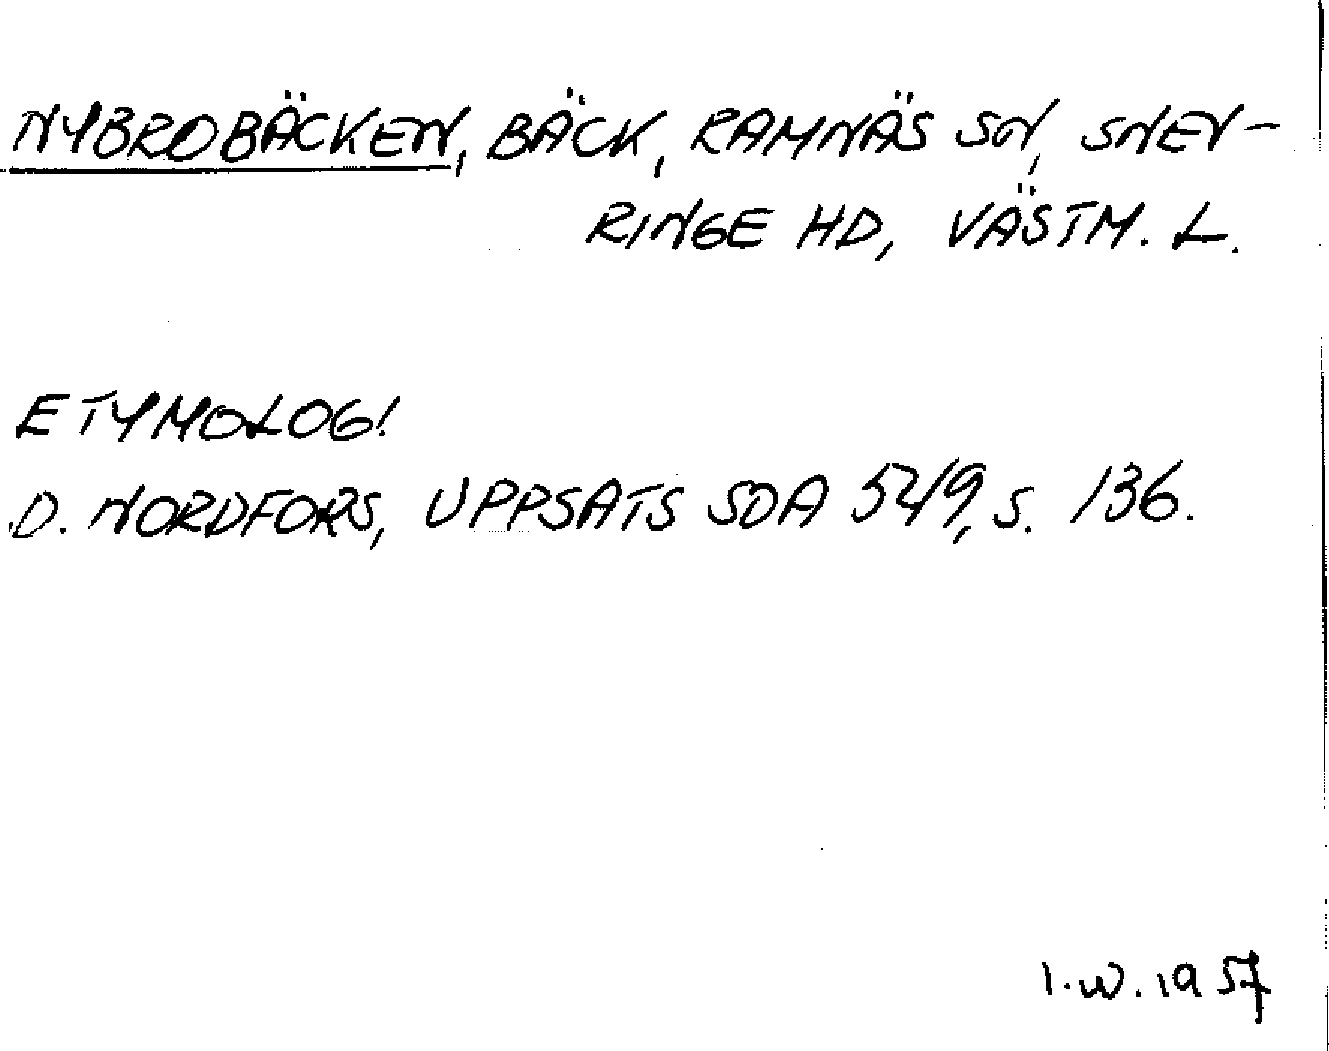 NYBROBÄCKEN, BÄCK, RAMNÄS SN, SNEV-
RINGE HD, VÄSTM. L.
ETYMOLOGI
D. NORDFORS, UPPSATS SOA 5219, S. 136.
I.W. 1957